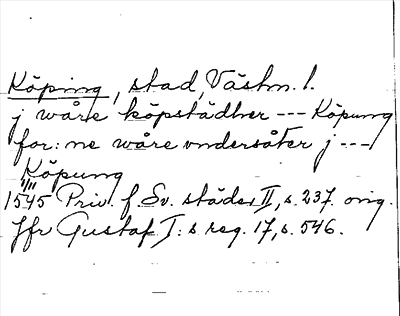 Köping, stad, Västm. l.
j wåre köpstädher --- Köpung
for: ne wåre vndersåter j ---
Köpung
11/11
1545 Priv. f. Sv. städer II, s. 237. orig.
Jfr Gustaf I: s reg. 17, s. 546.